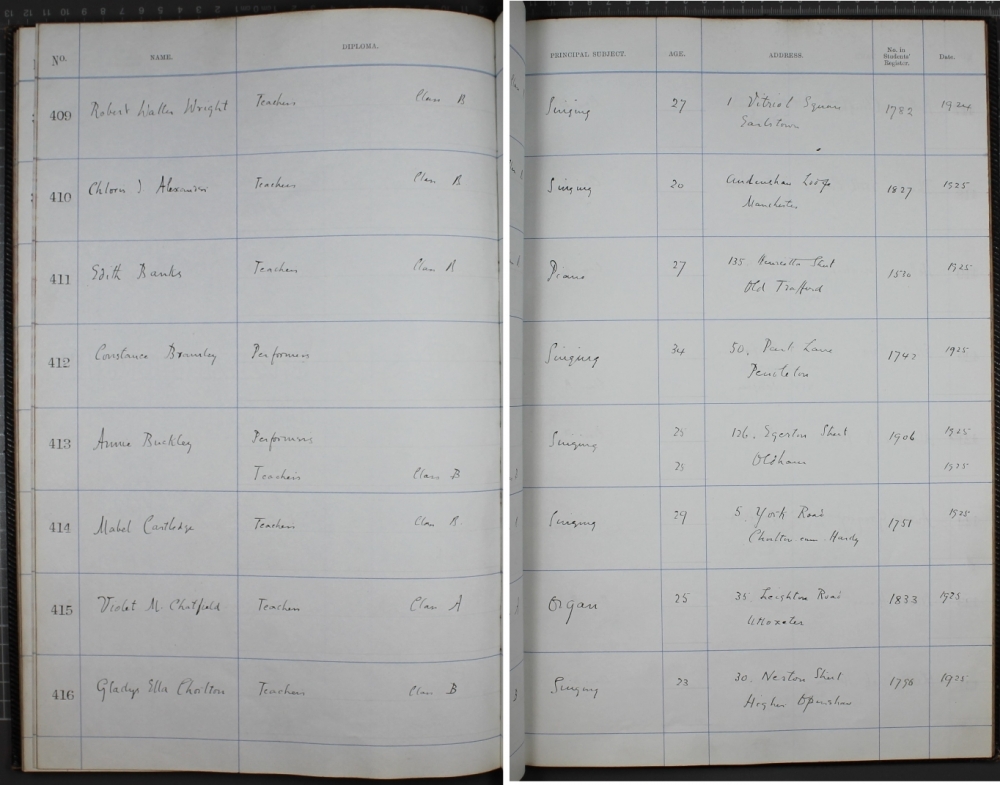 No. NAME. DIPLOMA. PRINCIPAL SUBJECT. AGE. ADDRESS. No. in Students' Register. Date.
409 Robert Walter Wright Teachers Class B Singing 27 1 Vitriol Square 1782 1924
Earlstown
410 Chloris J Teachers Class B Singing 20 Audenshaw Lodge 1827 1925
Manchester
411 Edith Banks Teachers Class B Piano 27 135 Henrietta Street 1530 1925
Old Trafford
412 Constance Bramley Performers Singing 34 50, Park Lane 1742 1925
Pendleton
413 Annie Buckley Performers Singing 25 126, Egerton Street 1906 1925
Teachers Class B 25 Oldham 1925
414 Mabel Cartledge Teachers Class B Singing 29 5 York Road 1751 1925
Chorlton cum Hardy
415 Violet M Chatfield Teachers Class A Organ 25 35 Leighton Road 1833 1925
Uttoxeter
416 Gladys Ella Chorlton Teachers Class B Singing 23 30, Neston Street 1796 1925
Higher Openshaw